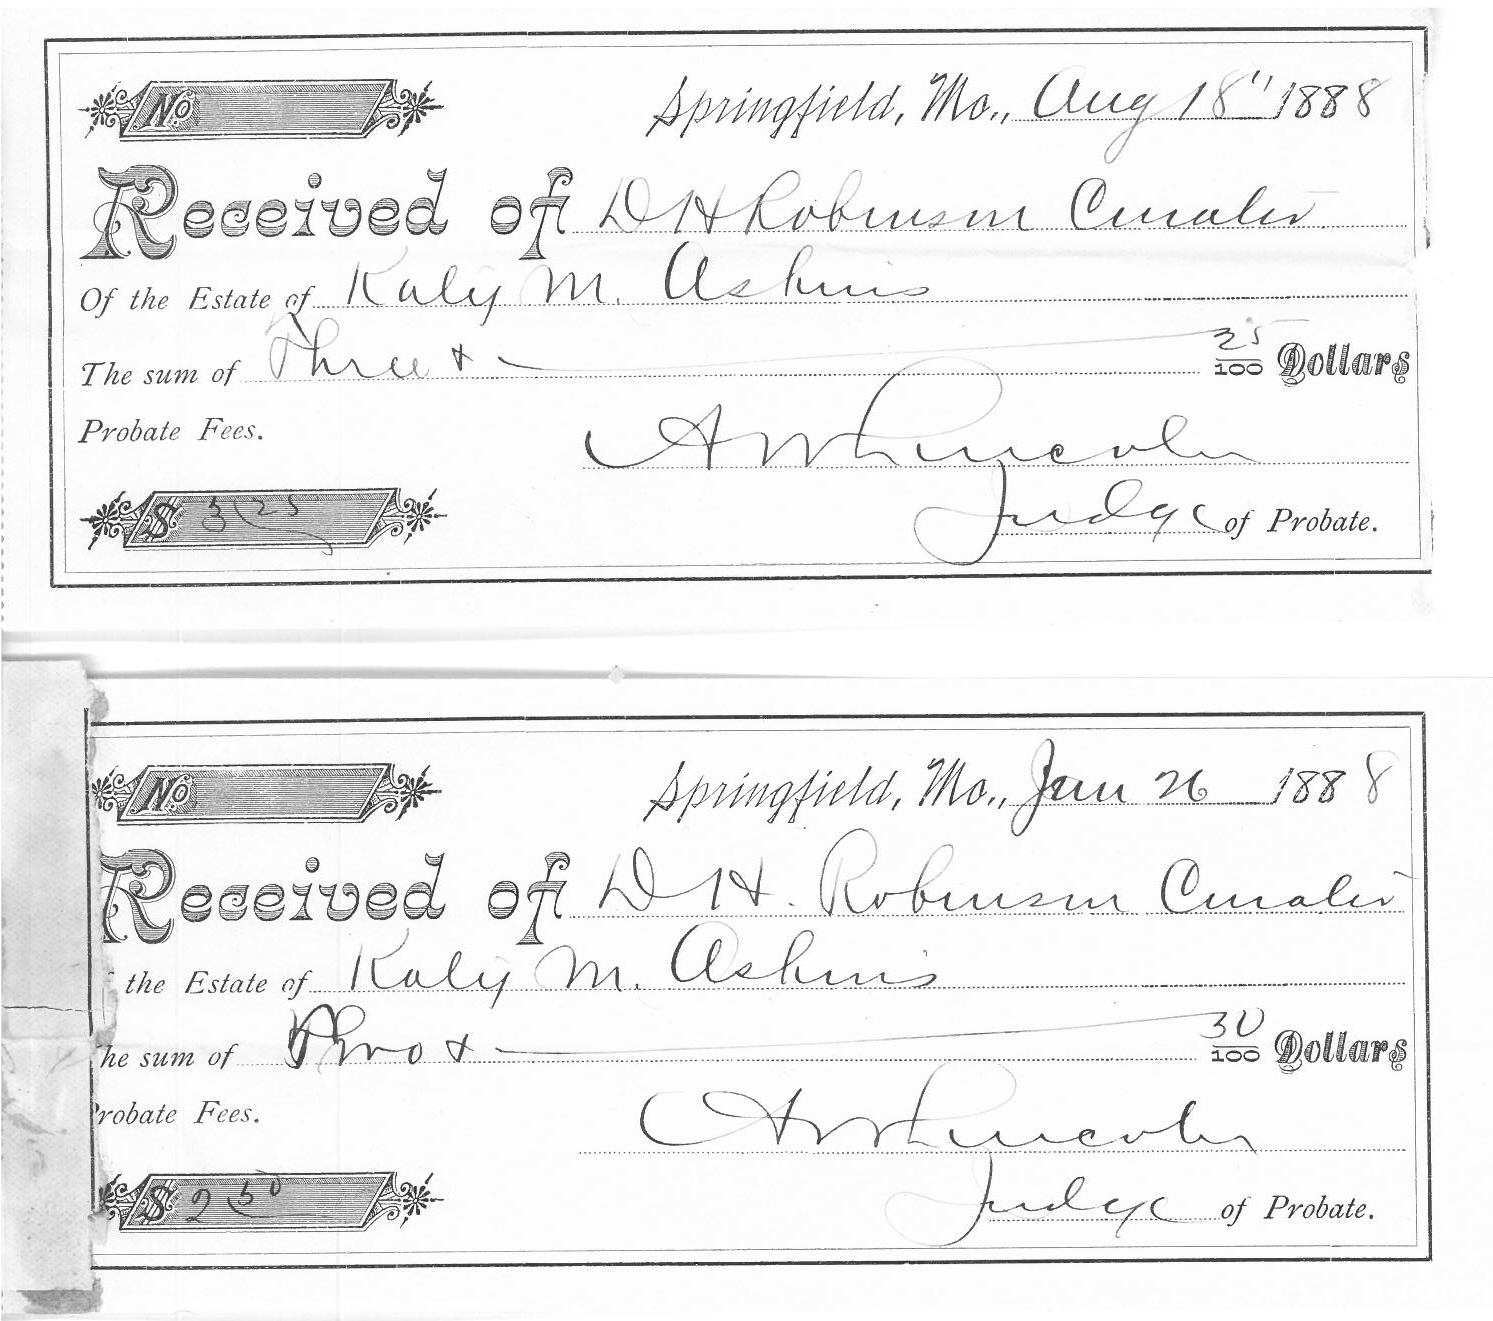 No
Springfield, Mo., Aug 18" 1888
Received of D H Robinson Curator
Of the Estate of Katy M. Askins
The sum of Three & 25/100 Dollars
Probate Fees.
A W Lincoln
$ 3.25
Judge of Probate.
No
Springfield, Mo., Jan 26 1888
Received of D H. Robinson Curator
the Estate of Katy M. Askins
he sum of Two & 30/100 Dollars
Probate Fees.
A W Lincoln
$ 2
Judge of Probate.